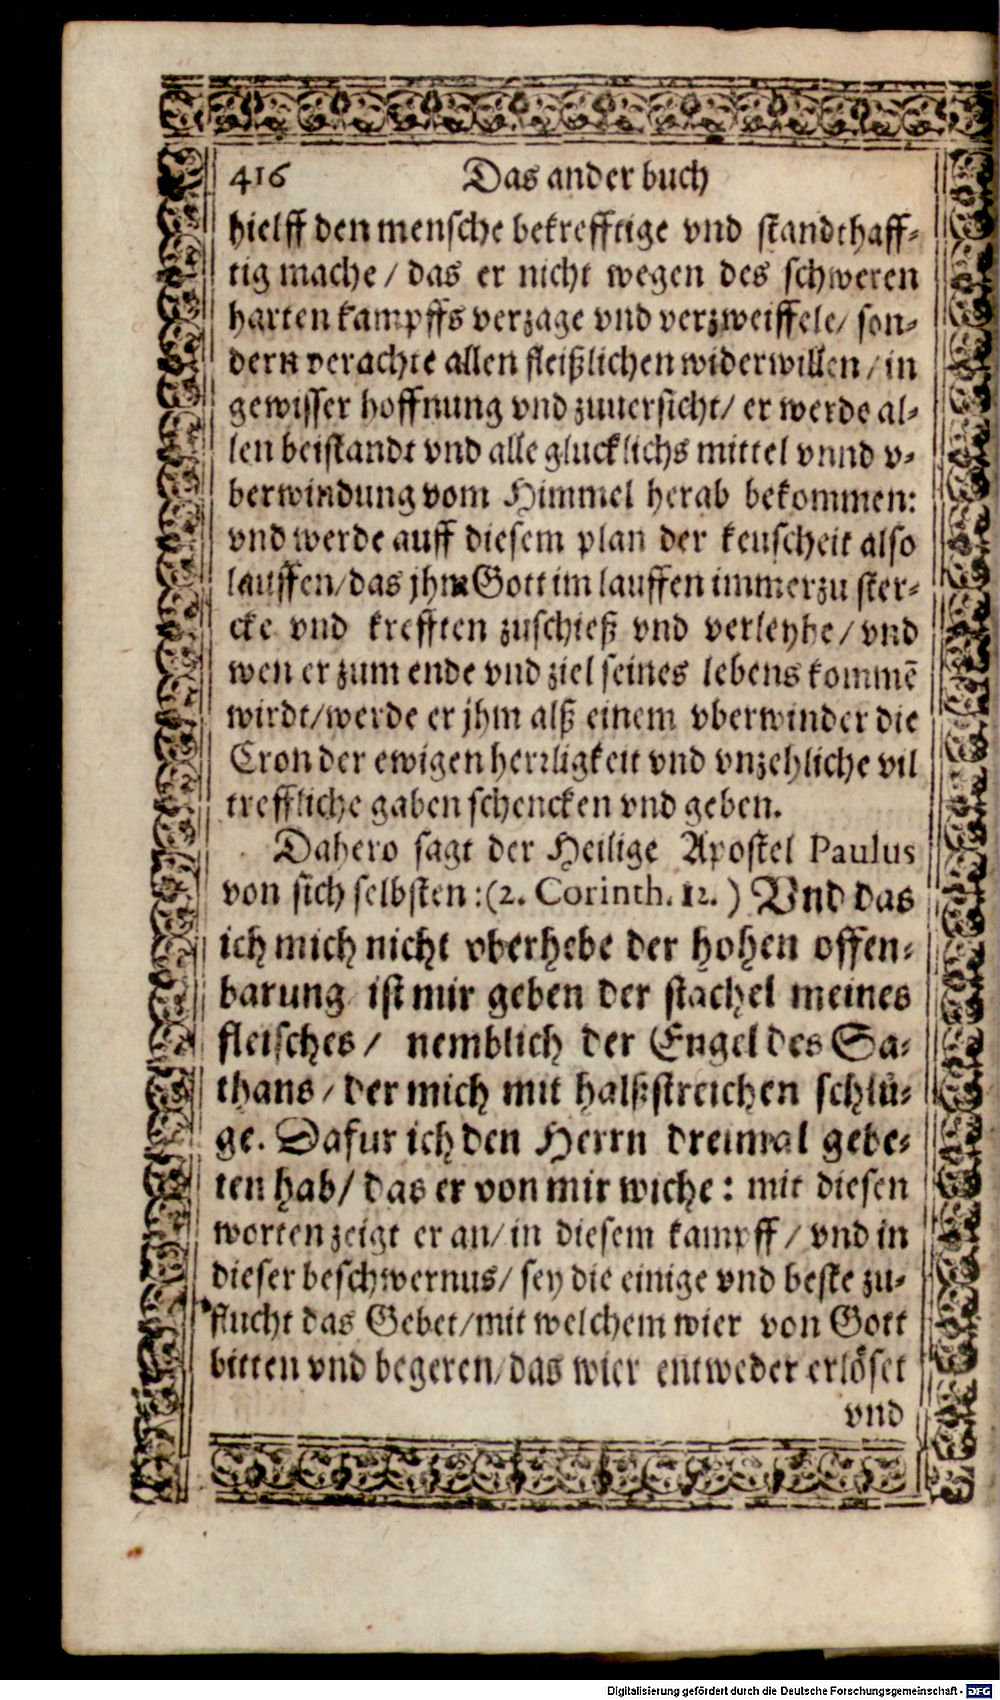 416 Das ander buch
hielff den mensche bekrefftige vnd standthaff-
tig mache / das er nicht wegen des schweren
harten kampffs verzage vnd verzweiffele / son-
dern verachte allen fleißlichen widerwillen / in
gewisser hoffnung vnd zuuersicht / er werde al-
len beistandt vnd alle glucklichs mittel vnnd v-
berwindung vom Himmel herab bekommen:
vnd werde auff diesem plan der keuscheit also
lauffen / das jhm Gott im lauffen immerzu ster-
cke vnd krefften zuschieß vnd verleyhe / vnd
wen er zum ende vnd ziel seines lebens kommē
wirdt / werde er jhm alß einem vberwinder die
Cron der ewigen herrligkeit vnd vnzehliche vil
treffliche gaben schencken vnd geben.
Dahero sagt der Heilige Apostel Paulus
von sich selbsten: (2. Corinth. 12.) Vnd das
ich mich nicht vberhebe der hohen offen-
barung ist mir geben der stachel meines
fleisches / nemblich der Engel des Sa-
thans / der mich mit halßstreichen schlü-
ge. Dafur ich den Herrn dreimal gebe-
ten hab / das er von mir wiche: mit diesen
worten zeigt er an / in diesem kampff / vnd in
dieser beschwernus / sey die einige vnd beste zu-
flucht das Gebet / mit welchem wier von Gott
bitten vnd begeren / das wier entweder erlöset
vnd
Digitalisierung gefördert durch die Deutsche Forschungsgemeinschaft - DFG